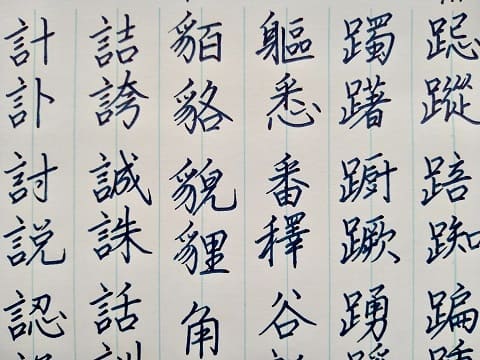 跽蹤踣踟蹁
躅躇蹰蹶踴
軀悉番釋谷
貊貉貌貍角
詰誇誠誅話
計訃討説認